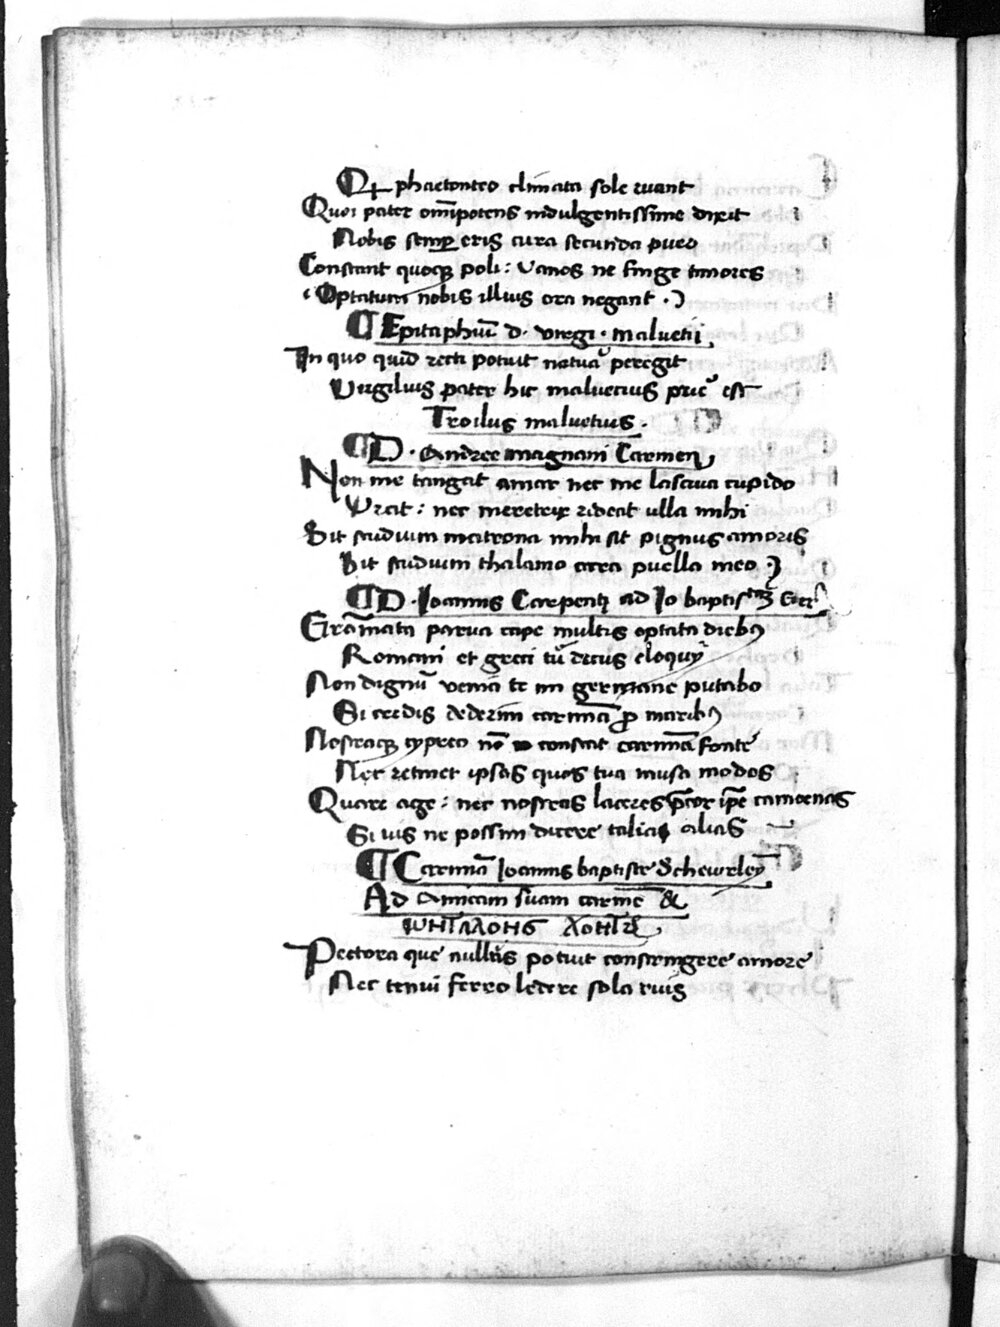 Qꝓ phaetonteo climata sole ruant
Quoi pater om̄ipotens indulgentissime dixit
Nobis semꝑ eris cura secunda puer
Constant quoqꝫ poli: vanos ne finge timores
Optatum nobis illius ora negant ·)
¶ Epitaphiū d· virgi· maluetii
In quo quid recti potuit natura peregit
Virgilius pater hic maluetius
Troilus maluetius ·
¶ D · Andree magnani Carmen
Non me tangat amor nec me lasciua cupido
Vrat: nec meretrix rideat ulla mihi
Sit studium matrona mihi sit pignus amoris
Sit studium thalamo cara puella meo
¶ D · Ioannis Carpentꝫ ad Io baptistā
Gram̄ata parua cape multis optata diebꝰ
Romani et greci tū decus eloquy
Non dignū venia te mi germane putabo
Si credis dederim carmīa ꝓ maribꝰ
Nostraqꝫ cypreo nō constat carmīa fonte
Nec retinet ipsas quos tua musa modos
Quare age: nec nostras laceres p̄cor ip̄e camoenas
Si uis ne possim dicere talia alias
¶ Carmīa Ioannis baptiste Scheurley
Ad Amicam suam carmē &
Pectora que nullus potuit constringere amore
Nec tenui ferro ledere sola ruis